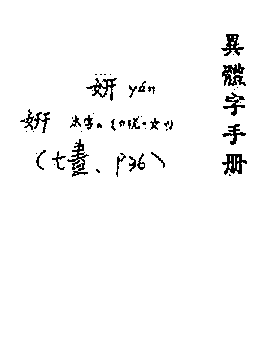 異體字手册
妍 yán
姸 本字。《說·女部》
(七畫、P36)